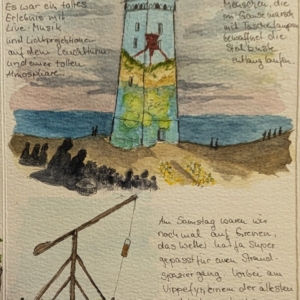 Es war ein tolles
Erlebnis mit
Live-Musik
und Lichtprojektionen
auf dem Leuchtturm
und einer tollen
Atmosphäre.
Menschen, die
im Gänsemarsch
mit Taschenlampen
bewaffnet die
entlanglaufen
Am Samstag waren wir
nochmal auf Grenen,
das Wetter hat ja super
gepasst für einen Strand-
spaziergang. Vorbei am
Vippefyr, einem der ältesten